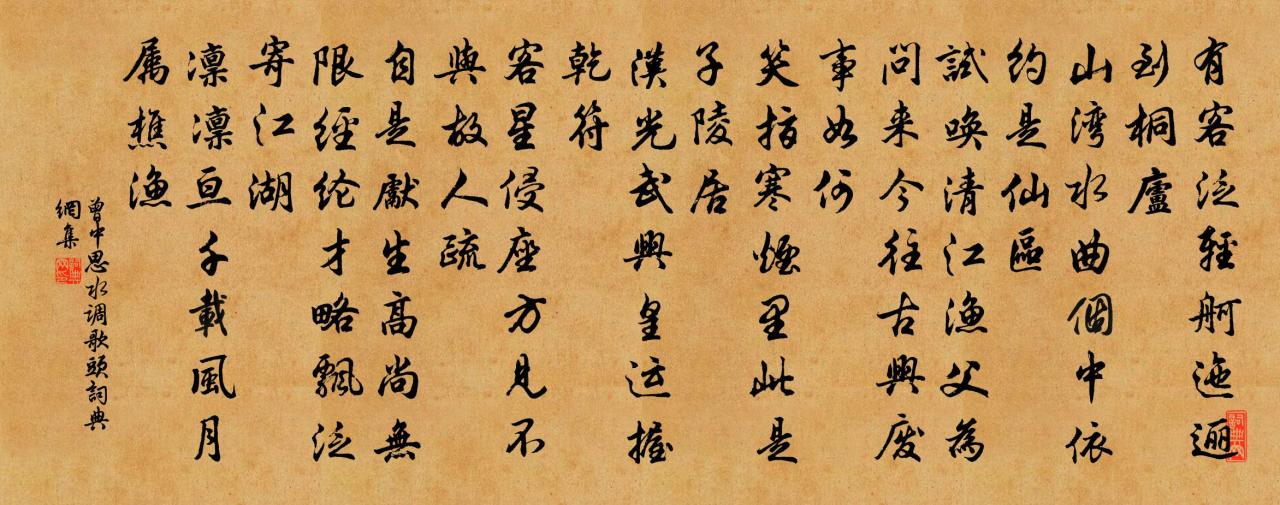 有客泛輕舸迤逦
到桐廬
山湾水曲個中依
约是仙區
試唤清江漁父為
问来今往古興废
事如何
笑指寒煙里此是
子陵居
漢光武興皇运握
乾符
客星侵座方见不
與故人疏
自是獻生高尚無
限經纶才略飄泛
寄江湖
凛凛亘千載風月
属樵渔
曾中思水调歌頭詞典
網集